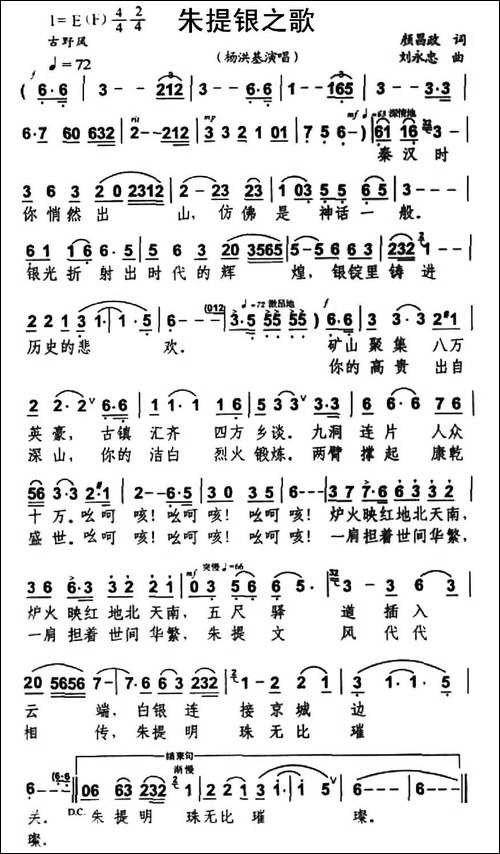 朱提银之歌
1=E(F) 4/4 2/4
古野风
♩=72
(杨洪基演唱)
颜昌政 词
刘永忠 曲
f
( 6·6 | 3 - - 212 | 3 - - 6·6 | 1 - - 165 | 3 - - - | 3 - - 3·3 |
rit mp mf ♩=63 深情地
6·7 60 60 632 | 2 - - 212 | 3 - - - | 3 32 1 01 | 7 5 6 - ) 61 16 3 -
秦汉时
3 6 3 2 0 2312 | 2 - 23 23 | 1 03 5 5 65 5 | 3 - - - |
你悄然出 山, 仿佛是 神话一 般。
6 1 1 6 6·5 | 5 6 3 20 3565 | 5 - 6·3 | 232 1 - -
银光折 射出时代的辉 煌, 银锭里铸 进
♩=72 激昂地 f
2 2 1 3 1·1·5 | 6 - - - (012 | 3·5 55 55 ) 6·6 | 3 3·3 2#1
历史的悲 欢。 矿山 聚集 八万
你的 高贵 出自
2 2·2 6·6 | 1 1·1 1 6 | 2·3 2 2 3·3 | 6 6·6 7 6
英豪, 古镇 汇齐 四方 乡谈。九洞 连片 人众
深山, 你的 洁白 烈火 锻炼。两臂 撑起 康乾
56 3·3 2#1 | 2 - - 6·5 | 3 0 3 5 | 6 - - - | 37 7·6 63 32
十万。吆呵 咳!吆呵 咳!吆呵 咳! 炉火映红地北天南,
盛世。吆呵 咳!吆呵 咳!吆呵 咳! 一肩担着世间华繁,
mf 突慢 ♩=66
3 6 6·7 6 3 3 2 | 2 1 0 3 5 6 6 5 | 3 - 3 6 3
炉火 映红 地北 天南, 五尺 驿 道 插入
一肩 担着 世间 华繁, 朱提 文 风 代代
20 5656 7 - | 7·6 63 232 | 1 - 2 2 1 | 3 1·1·5
云 端, 白银连 接京城 边
相 传, 朱提明 珠无比 璀
结束句
渐慢
6 - - (6·6 | 06 63 232 1 | 2 2 1 3 - | 1 - - 5 | 6 - - - | 6 - - - ‖
关。 D.C. 朱提明 珠无比 璀 璨。
璨。